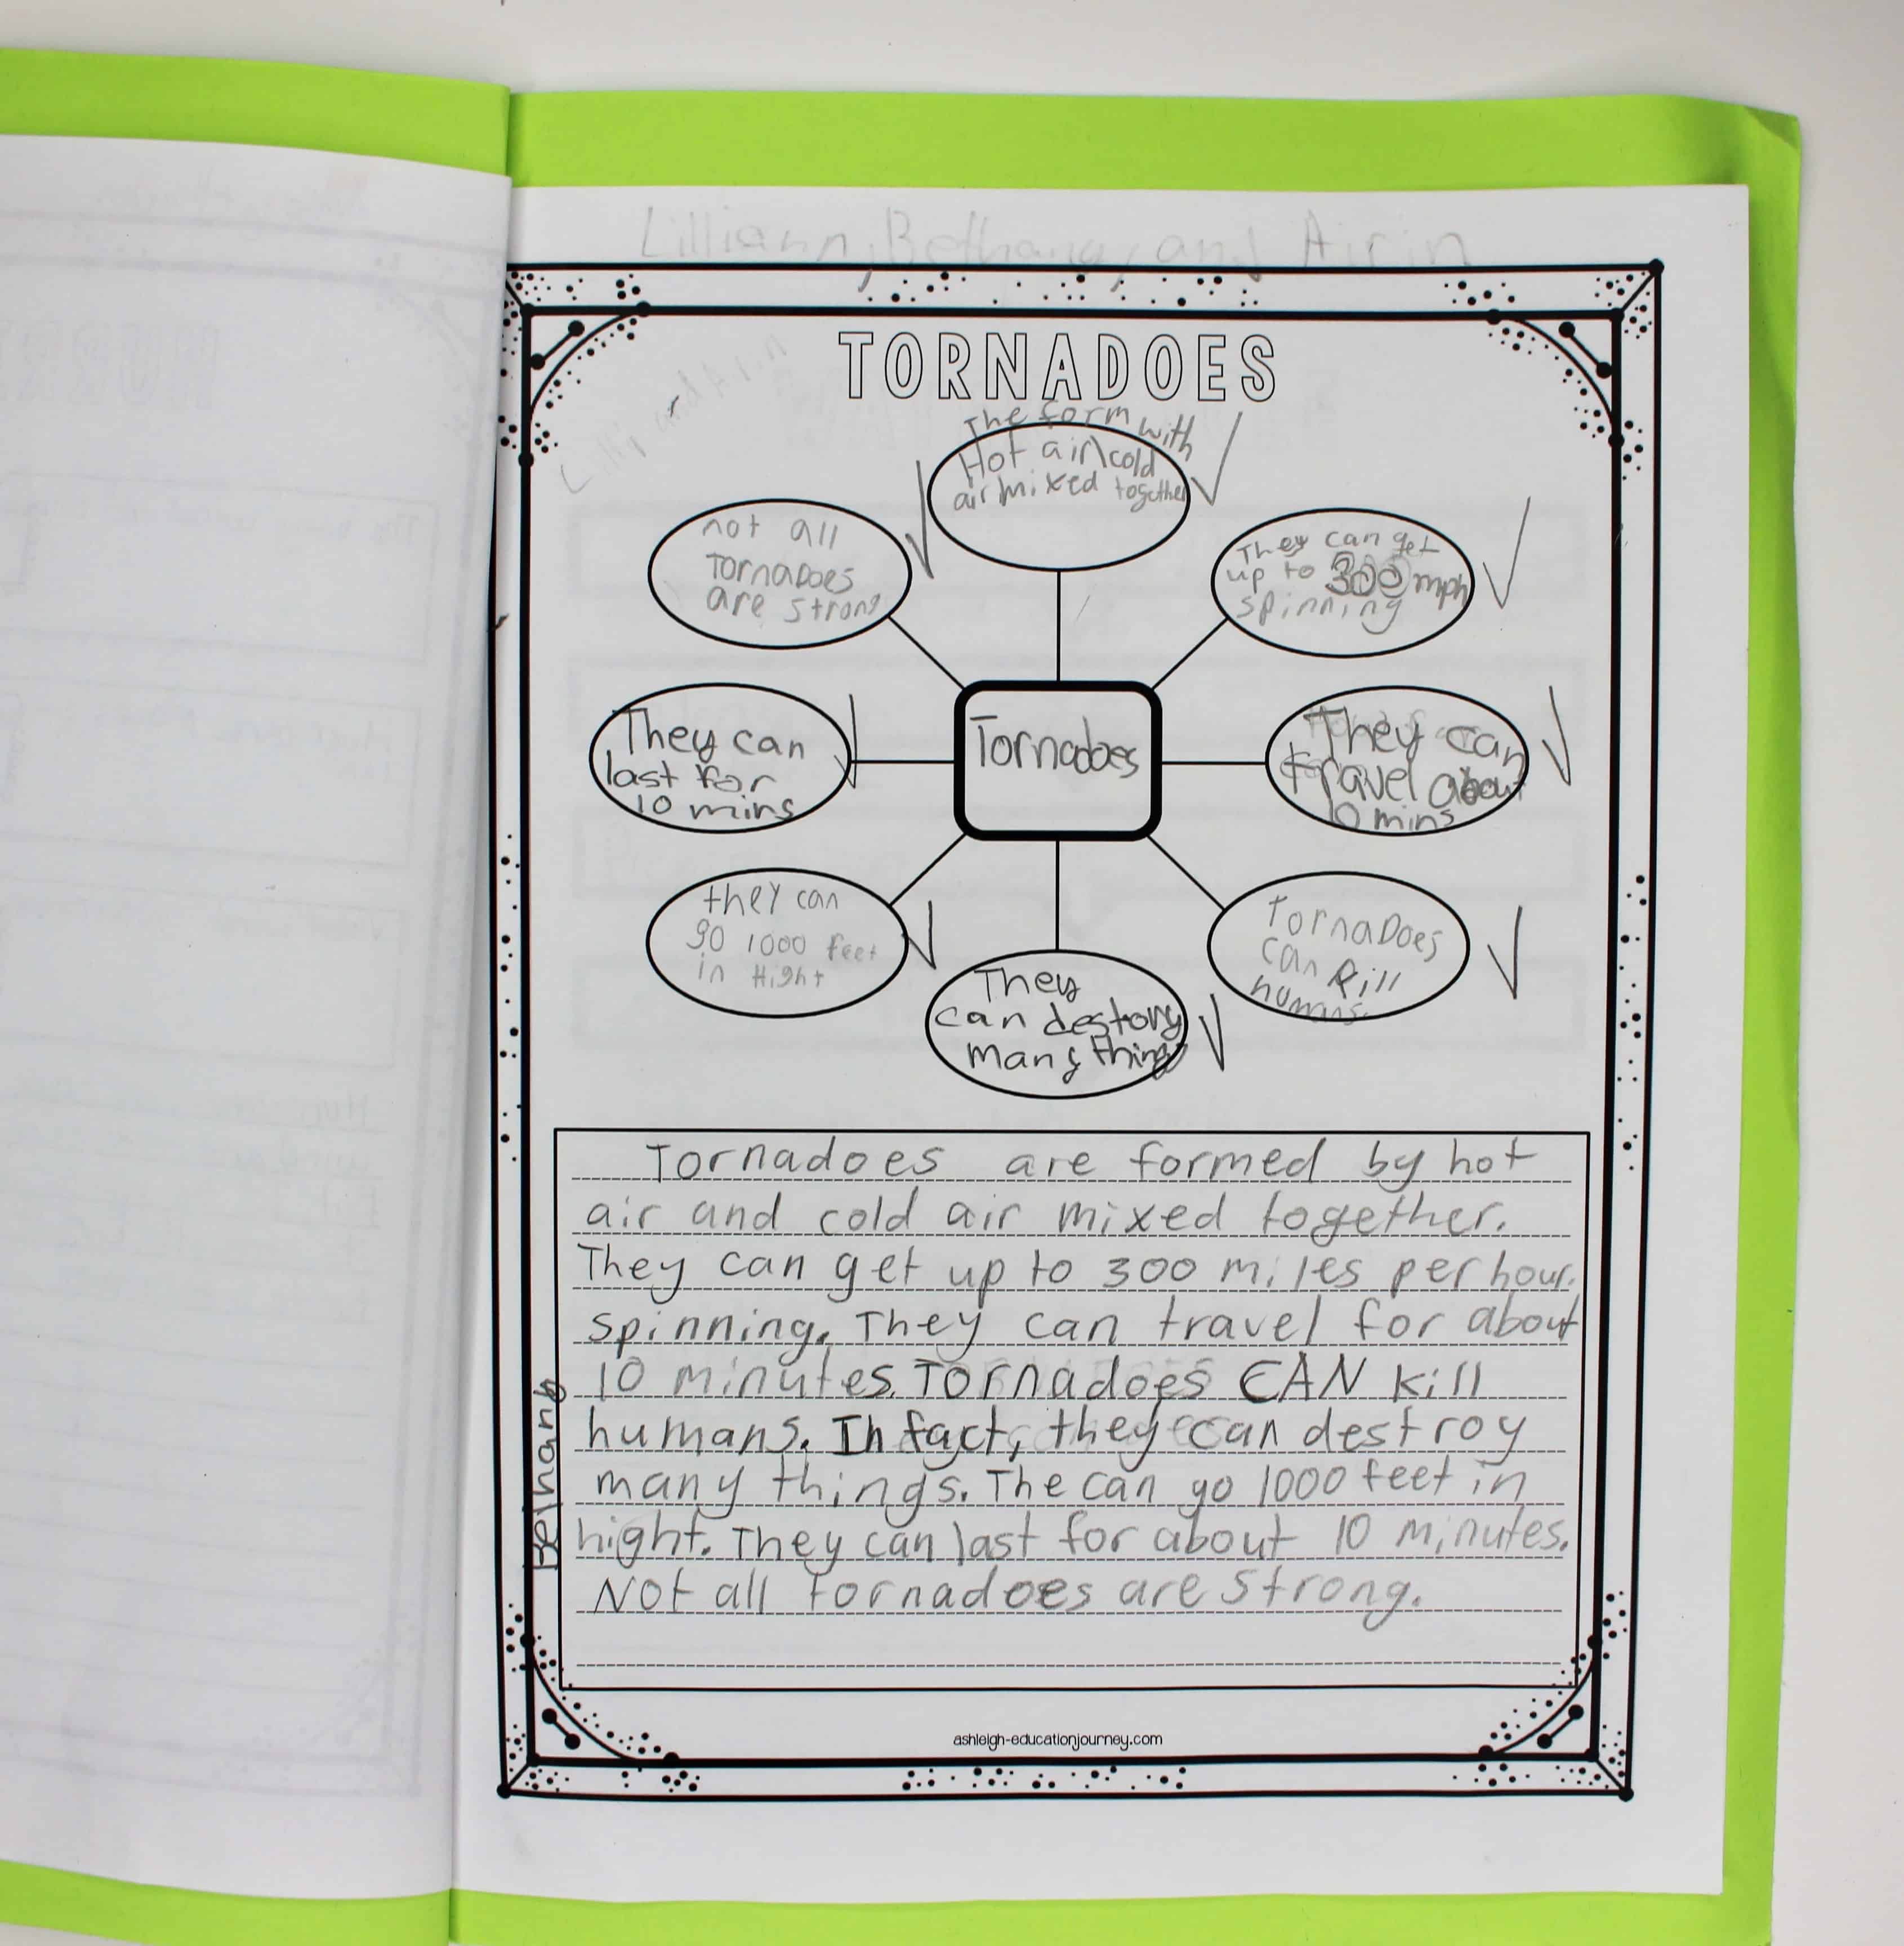 Lilliann, Bethany, and Airin
TORNADOES
Lilly and Airin
The form with
Hot air\cold
air mixed together
not all
TornaDoes
are strong
They can get
up to 300 mph
spinning
They can
last for
10 mins
Tornadoes
They can
travel about
10 mins
they can
go 1000 feet
in Hight
TornaDoes
can kill
humans.
They
can destory
many things
Tornadoes are formed by hot
air and cold air mixed together.
They can get up to 300 miles per hour.
spinning. They can travel for about
10 minutes. Tornadoes CAN kill
humans. In fact, they can destroy
many things. The can go 1000 feet in
hight. They can last for about 10 minutes.
Not all tornadoes are strong.
Bethany
ashleigh-educationjourney.com